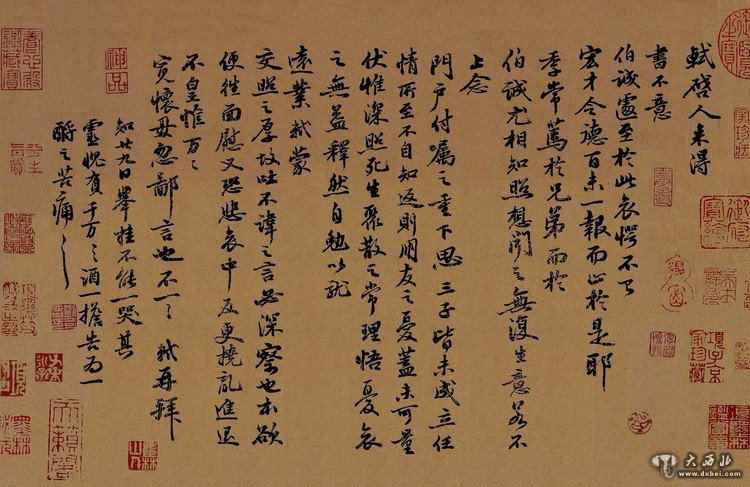 軾啓人來得
書不意
伯誠遽至於此哀愕不已
宏才令德百未一報而止於是耶
季常篤於兄弟而於
伯誠尤相知照想聞之無復生意若不
上念
門戶付囑之重下思三子皆未成立任
情所至不自知返則朋友之憂蓋未可量
伏惟深照死生聚散之常理悟憂哀
之無益釋然自勉以就
遠業軾蒙
交照之厚故吐不諱之言必深察也本欲
便往面慰又恐悲哀中反更撓亂進退
不皇惟萬萬
寬懷毋忽鄙言也不一一軾再拜
知廿九日舉挂不能一哭其
靈愧負千万千万酒一擔告為一
酹之苦痛苦痛
神品
項子京家珍藏
天籟閣
大西北
www.dxbei.com